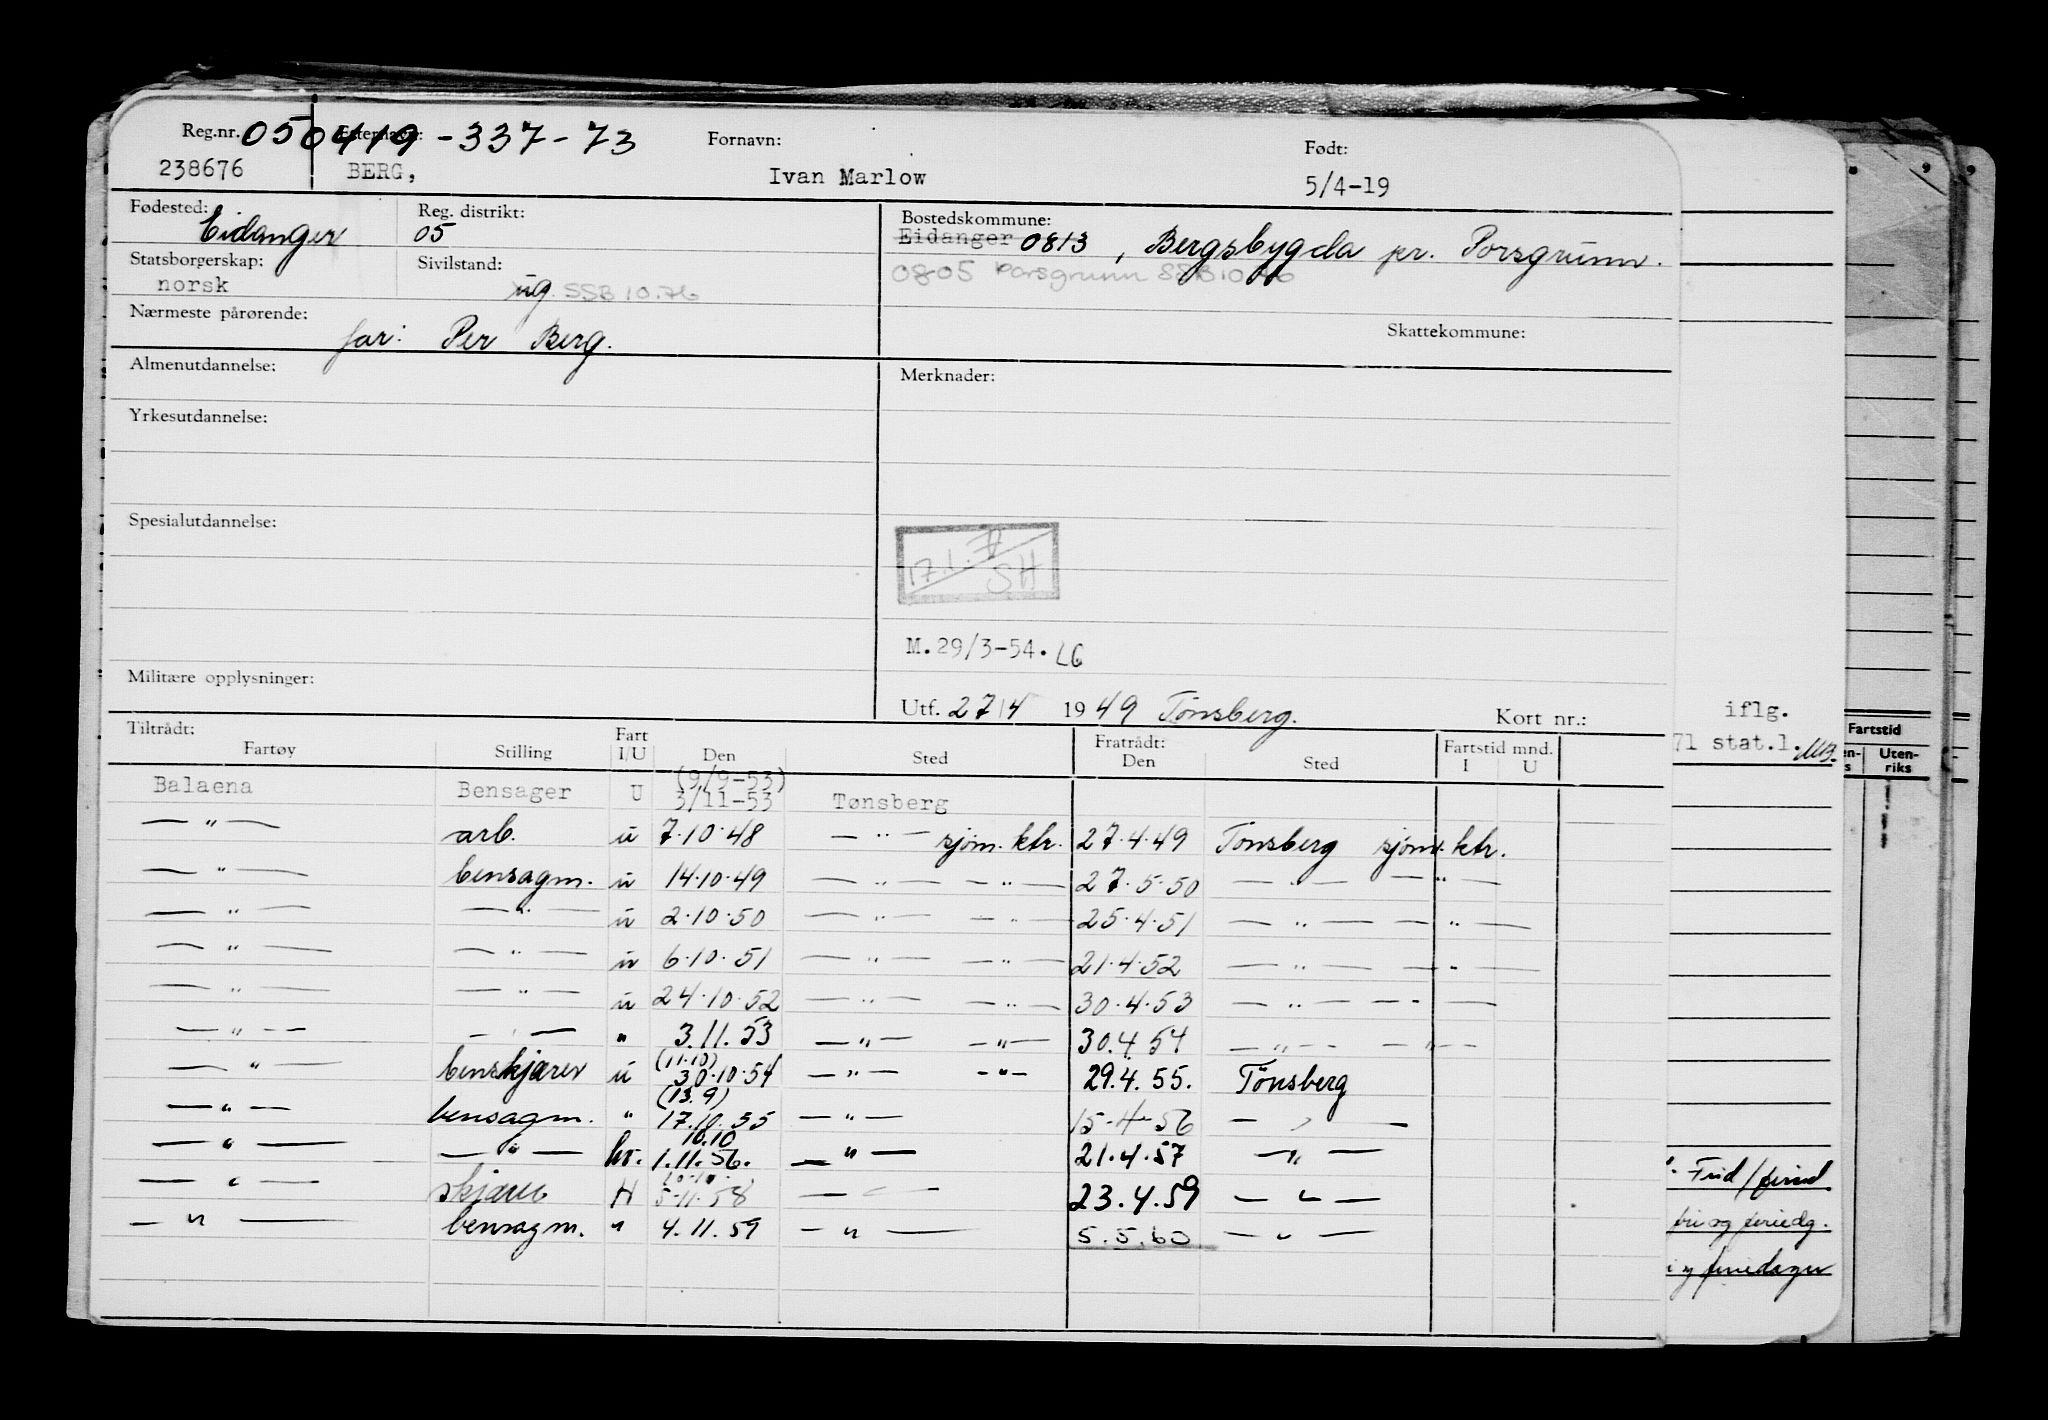 Reg.nr. 050419-337-73 Etternavn: Fornavn: Født:
238676 BERG, Ivan Marlow 5/4-19
Fødested: Eidanger Reg. distrikt: 05 Bostedskommune: Eidanger 0813, Bergsbygda pr. Porsgrunn.
0805 Porsgrunn SSB 10.76
Statsborgerskap: norsk Sivilstand: ug. SSB 10.76
Nærmeste pårørende: far: Per Berg. Skattekommune:
Almenutdannelse: Merknader:
Yrkesutdannelse:
Spesialutdannelse:
17.1. SH
M.29/3-54. LG
Militære opplysninger:
Utf. 27/4 1949 Tønsberg. Kort nr.: iflg.
71 stat.l.
Tiltrådt: Fratrådt:
Fartøy Stilling Fart I/U Den Sted Den Sted Fartstid mnd. I U
Fartstid Uten-riks
Balaena Bensager U (9/9-53) 3/11-53 Tønsberg
— " — arb. u 7.10.48 — " — sjøm. ktr. 27.4.49 Tønsberg sjøm. ktr.
— " — bensagm. u 14.10.49 — " — — " — 27.5.50 — " — — " —
— " — — " — u 2.10.50 — " — — " — 25.4.51 — " — — " —
— " — — " — u 6.10.51 — " — — " — 21.4.52 — " — — " —
— " — — " — u 24.10.52 — " — — " — 30.4.53 — " — — " —
— " — — " — " 3.11.53 — " — — " — 30.4.54 — " — — " —
— " — benskjærer u (11.10) 30.10.54 — " — - " - 29.4.55. Tönsberg
— " — bensagm. " (13.9) 17.10.55 — " — 15-4-56 — " —
— " — — " — hv. 10.10 1.11.56. — " — 21.4.57 — " —
— " — skjærer H 5.11.58 — " — 23.4.59 — " —
— " — bensagm. " 4.11.59 — " — 5.5.60 — " —
fri og feriedg.
feriedager